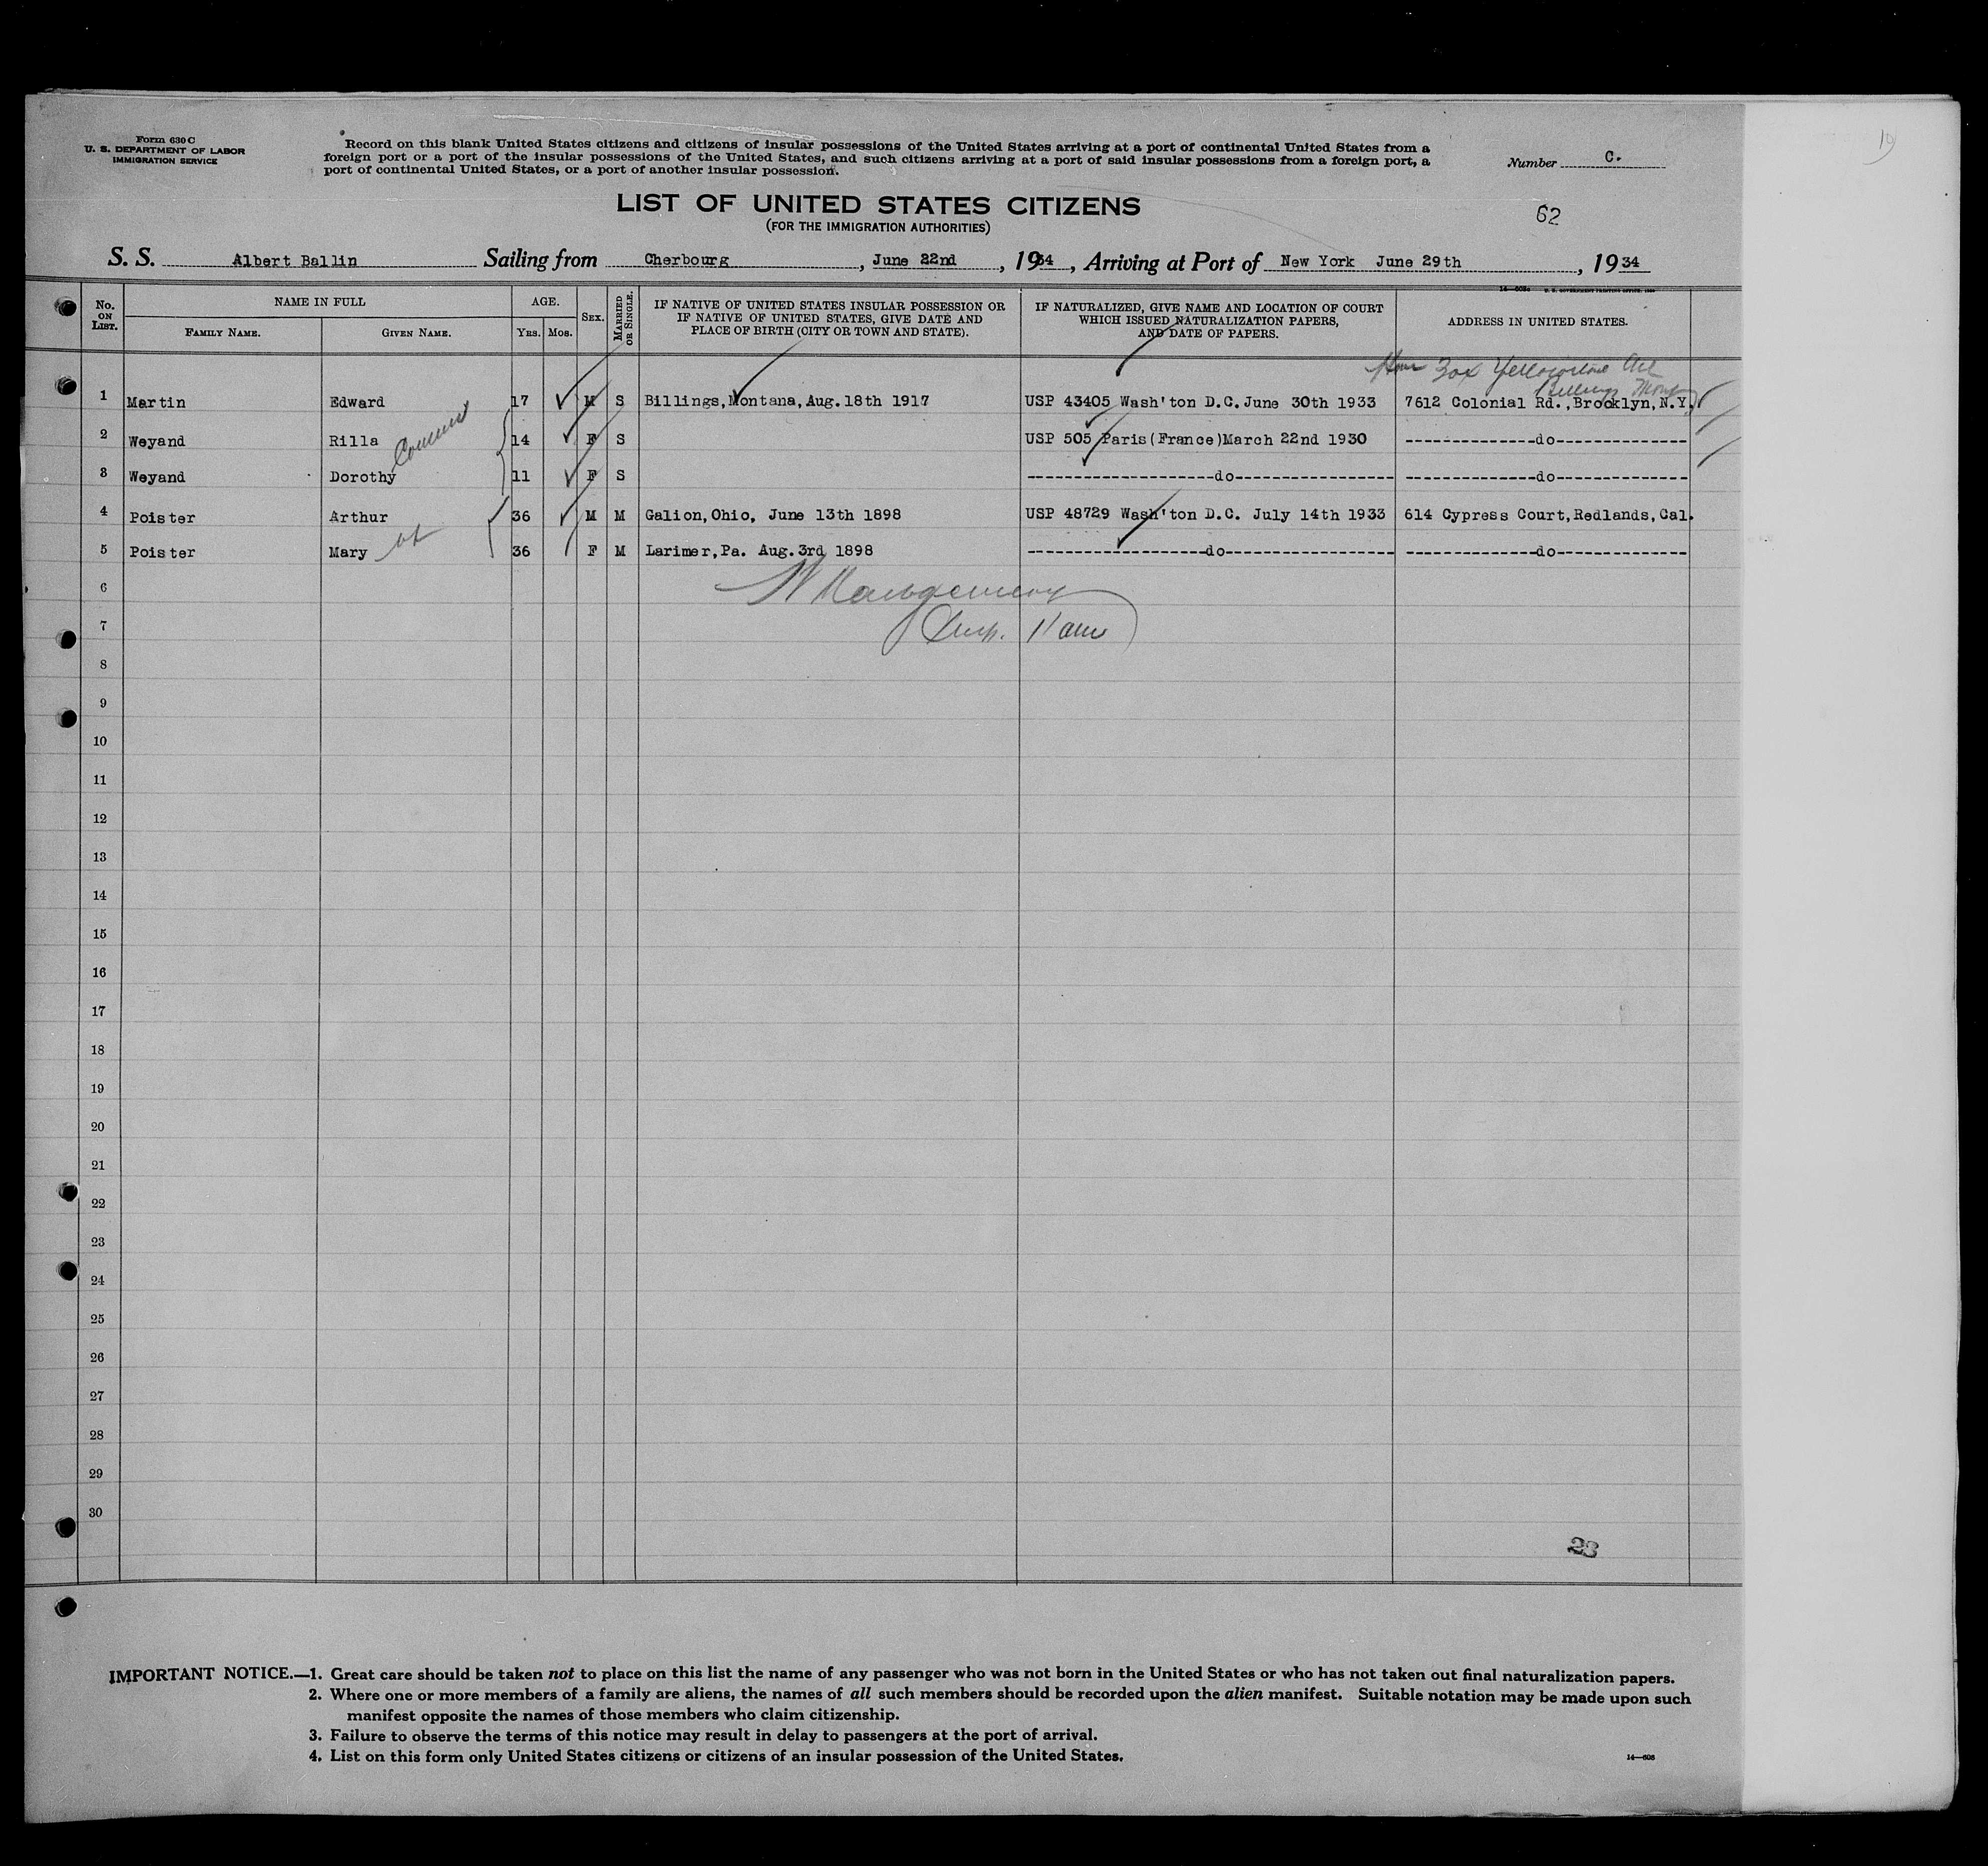 Form 630 C
U. S. DEPARTMENT OF LABOR
IMMIGRATION SERVICE
Record on this blank United States citizens and citizens of insular possessions of the United States arriving at a port of continental United States from a
foreign port or a port of the insular possessions of the United States, and such citizens arriving at a port of said insular possessions from a foreign port, a
port of continental United States, or a port of another insular possession.
Number C.
LIST OF UNITED STATES CITIZENS
(FOR THE IMMIGRATION AUTHORITIES)
62
S. S. Albert Ballin Sailing from Cherbourg, June 22nd, 1934, Arriving at Port of New York June 29th, 1934
No. ON LIST. NAME IN FULL AGE. SEX. MARRIED OR SINGLE. IF NATIVE OF UNITED STATES INSULAR POSSESSION OR IF NATIVE OF UNITED STATES, GIVE DATE AND PLACE OF BIRTH (CITY OR TOWN AND STATE). IF NATURALIZED, GIVE NAME AND LOCATION OF COURT WHICH ISSUED NATURALIZATION PAPERS, AND DATE OF PAPERS. ADDRESS IN UNITED STATES.
FAMILY NAME. GIVEN NAME. YRS. MOS.
Yellowstone Ave
Billings Mont
1 Martin Edward 17 M S Billings,Montana,Aug.18th 1917 USP 43405 Wash'ton D.C.June 30th 1933 7612 Colonial Rd.,Brooklyn,N.Y.
2 Weyand Rilla 14 F S USP 505 Paris(France)March 22nd 1930 --------------do--------------
3 Weyand Dorothy 11 F S --------------------do----------------- --------------do--------------
4 Poister Arthur 36 M M Galion,Ohio, June 13th 1898 USP 48729 Wash'ton D.C. July 14th 1933 614 Cypress Court,Redlands,Cal.
5 Poister Mary 36 F M Larimer,Pa. Aug.3rd 1898 -------------------do------------------ --------------do--------------
6
7
8
9
10
11
12
13
14
15
16
17
18
19
20
21
22
23
24
25
26
27
28
29
30
23
IMPORTANT NOTICE.—1. Great care should be taken not to place on this list the name of any passenger who was not born in the United States or who has not taken out final naturalization papers.
2. Where one or more members of a family are aliens, the names of all such members should be recorded upon the alien manifest. Suitable notation may be made upon such
manifest opposite the names of those members who claim citizenship.
3. Failure to observe the terms of this notice may result in delay to passengers at the port of arrival.
4. List on this form only United States citizens or citizens of an insular possession of the United States.
14—608